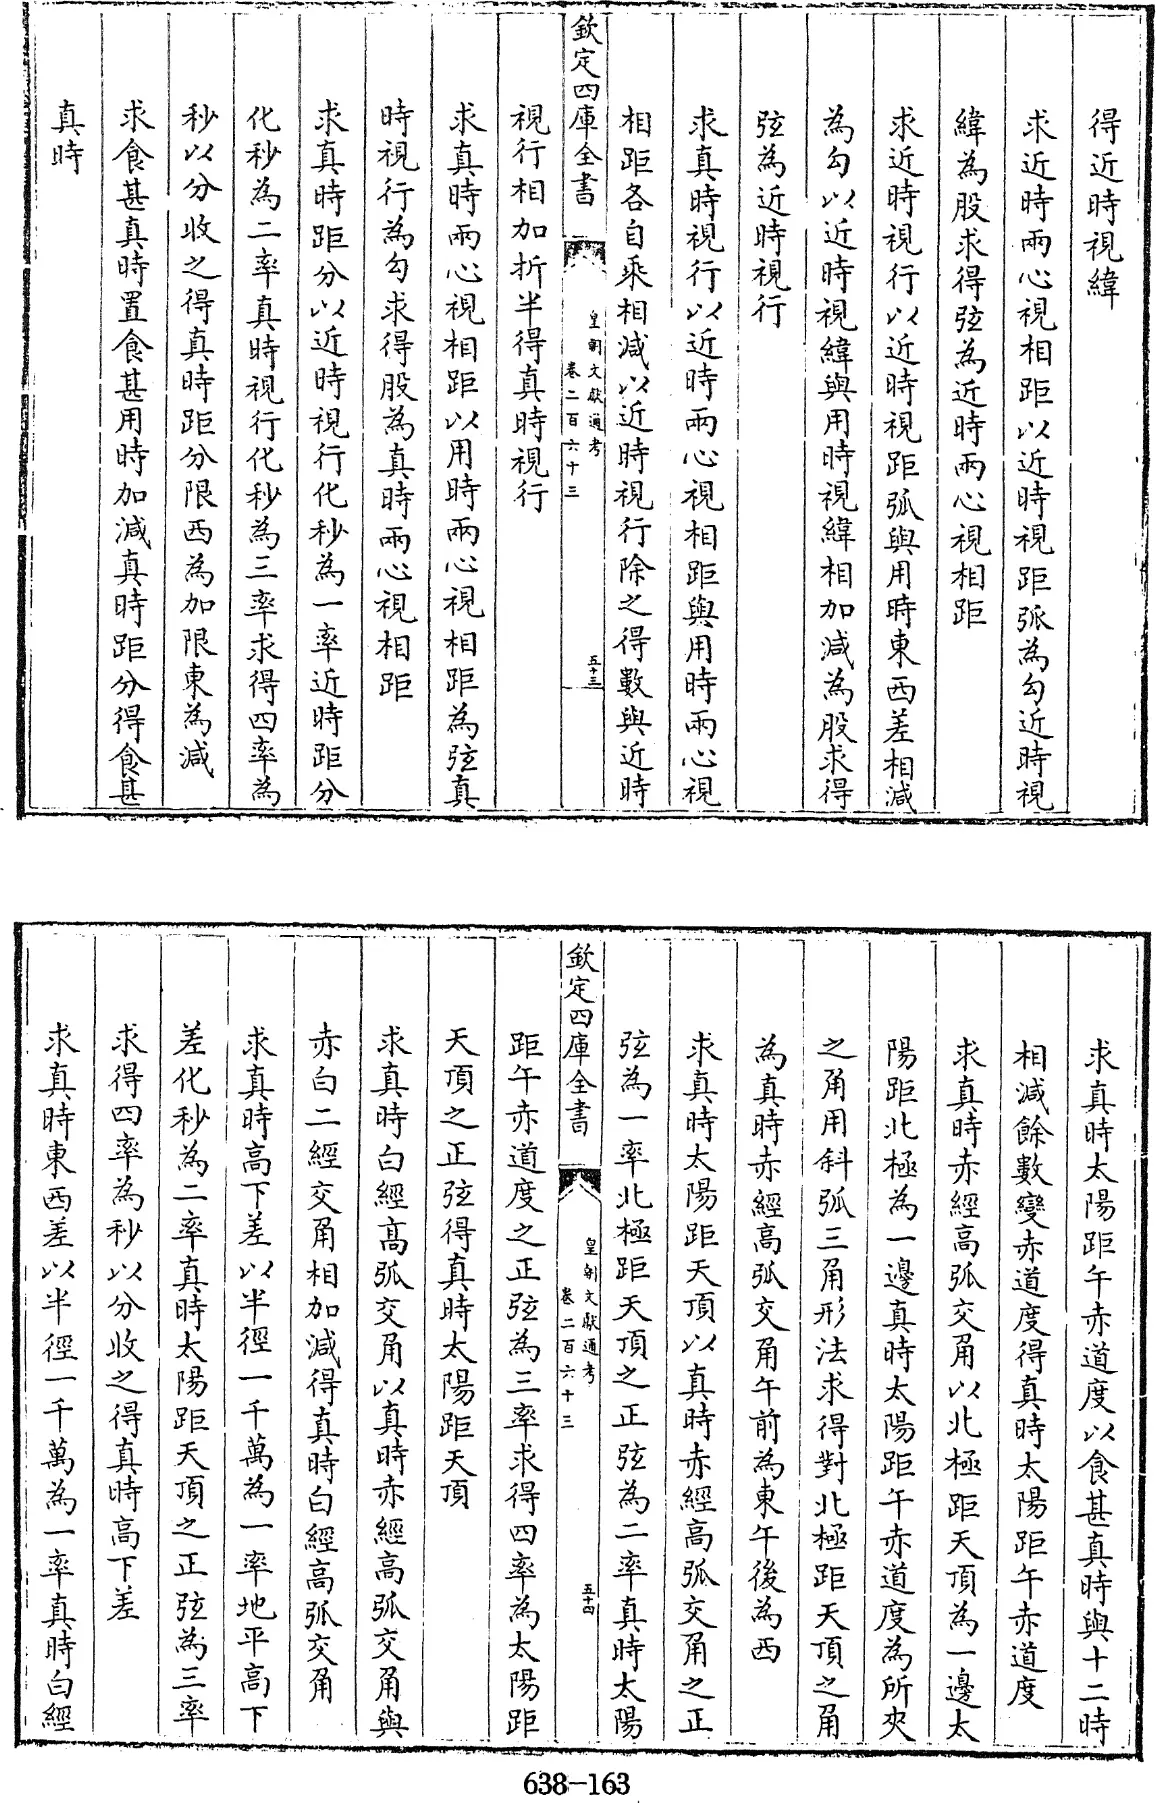 得近時視緯
求近時兩心視相距以近時視距弧為勾近時視
緯為股求得弦為近時兩心視相距
求近時視行以近時視距弧與用時東西差相減
為勾以近時視緯與用時視緯相加減為股求得
弦為近時視行
求真時視行以近時兩心視相距與用時兩心視
相距各自乘相減以近時視行除之得數與近時
欽定四庫全書
皇朝文獻通考
卷二百六十三
五十三
視行相加折半得真時視行
求真時兩心視相距以用時兩心視相距為弦真
時視行為勾求得股為真時兩心視相距
求真時距分以近時視行化秒為一率近時距分
化秒為二率真時視行化秒為三率求得四率為
秒以分收之得真時距分限西為加限東為減
求食甚真時置食甚用時加減真時距分得食甚
真時
求真時太陽距午赤道度以食甚真時與十二時
相減餘數變赤道度得真時太陽距午赤道度
求真時赤經高弧交角以北極距天頂為一邊太
陽距北極為一邊真時太陽距午赤道度為所夾
之角用斜弧三角形法求得對北極距天頂之角
為真時赤經高弧交角午前為東午後為西
求真時太陽距天頂以真時赤經高弧交角之正
弦為一率北極距天頂之正弦為二率真時太陽
欽定四庫全書
皇朝文獻通考
卷二百六十三
五十四
距午赤道度之正弦為三率求得四率為太陽距
天頂之正弦得真時太陽距天頂
求真時白經高弧交角以真時赤經高弧交角與
赤白二經交角相加減得真時白經高弧交角
求真時高下差以半徑一千萬為一率地平高下
差化秒為二率真時太陽距天頂之正弦為三率
求得四率為秒以分收之得真時高下差
求真時東西差以半徑一千萬為一率真時白經
638-163